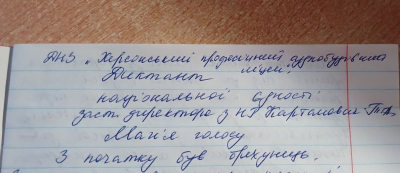 ДНЗ „Херсонський професійний суднобудівний
ліцей"
Диктант
національної єдності
заст. директора з НР Картамович
Магія голосу
З початку був